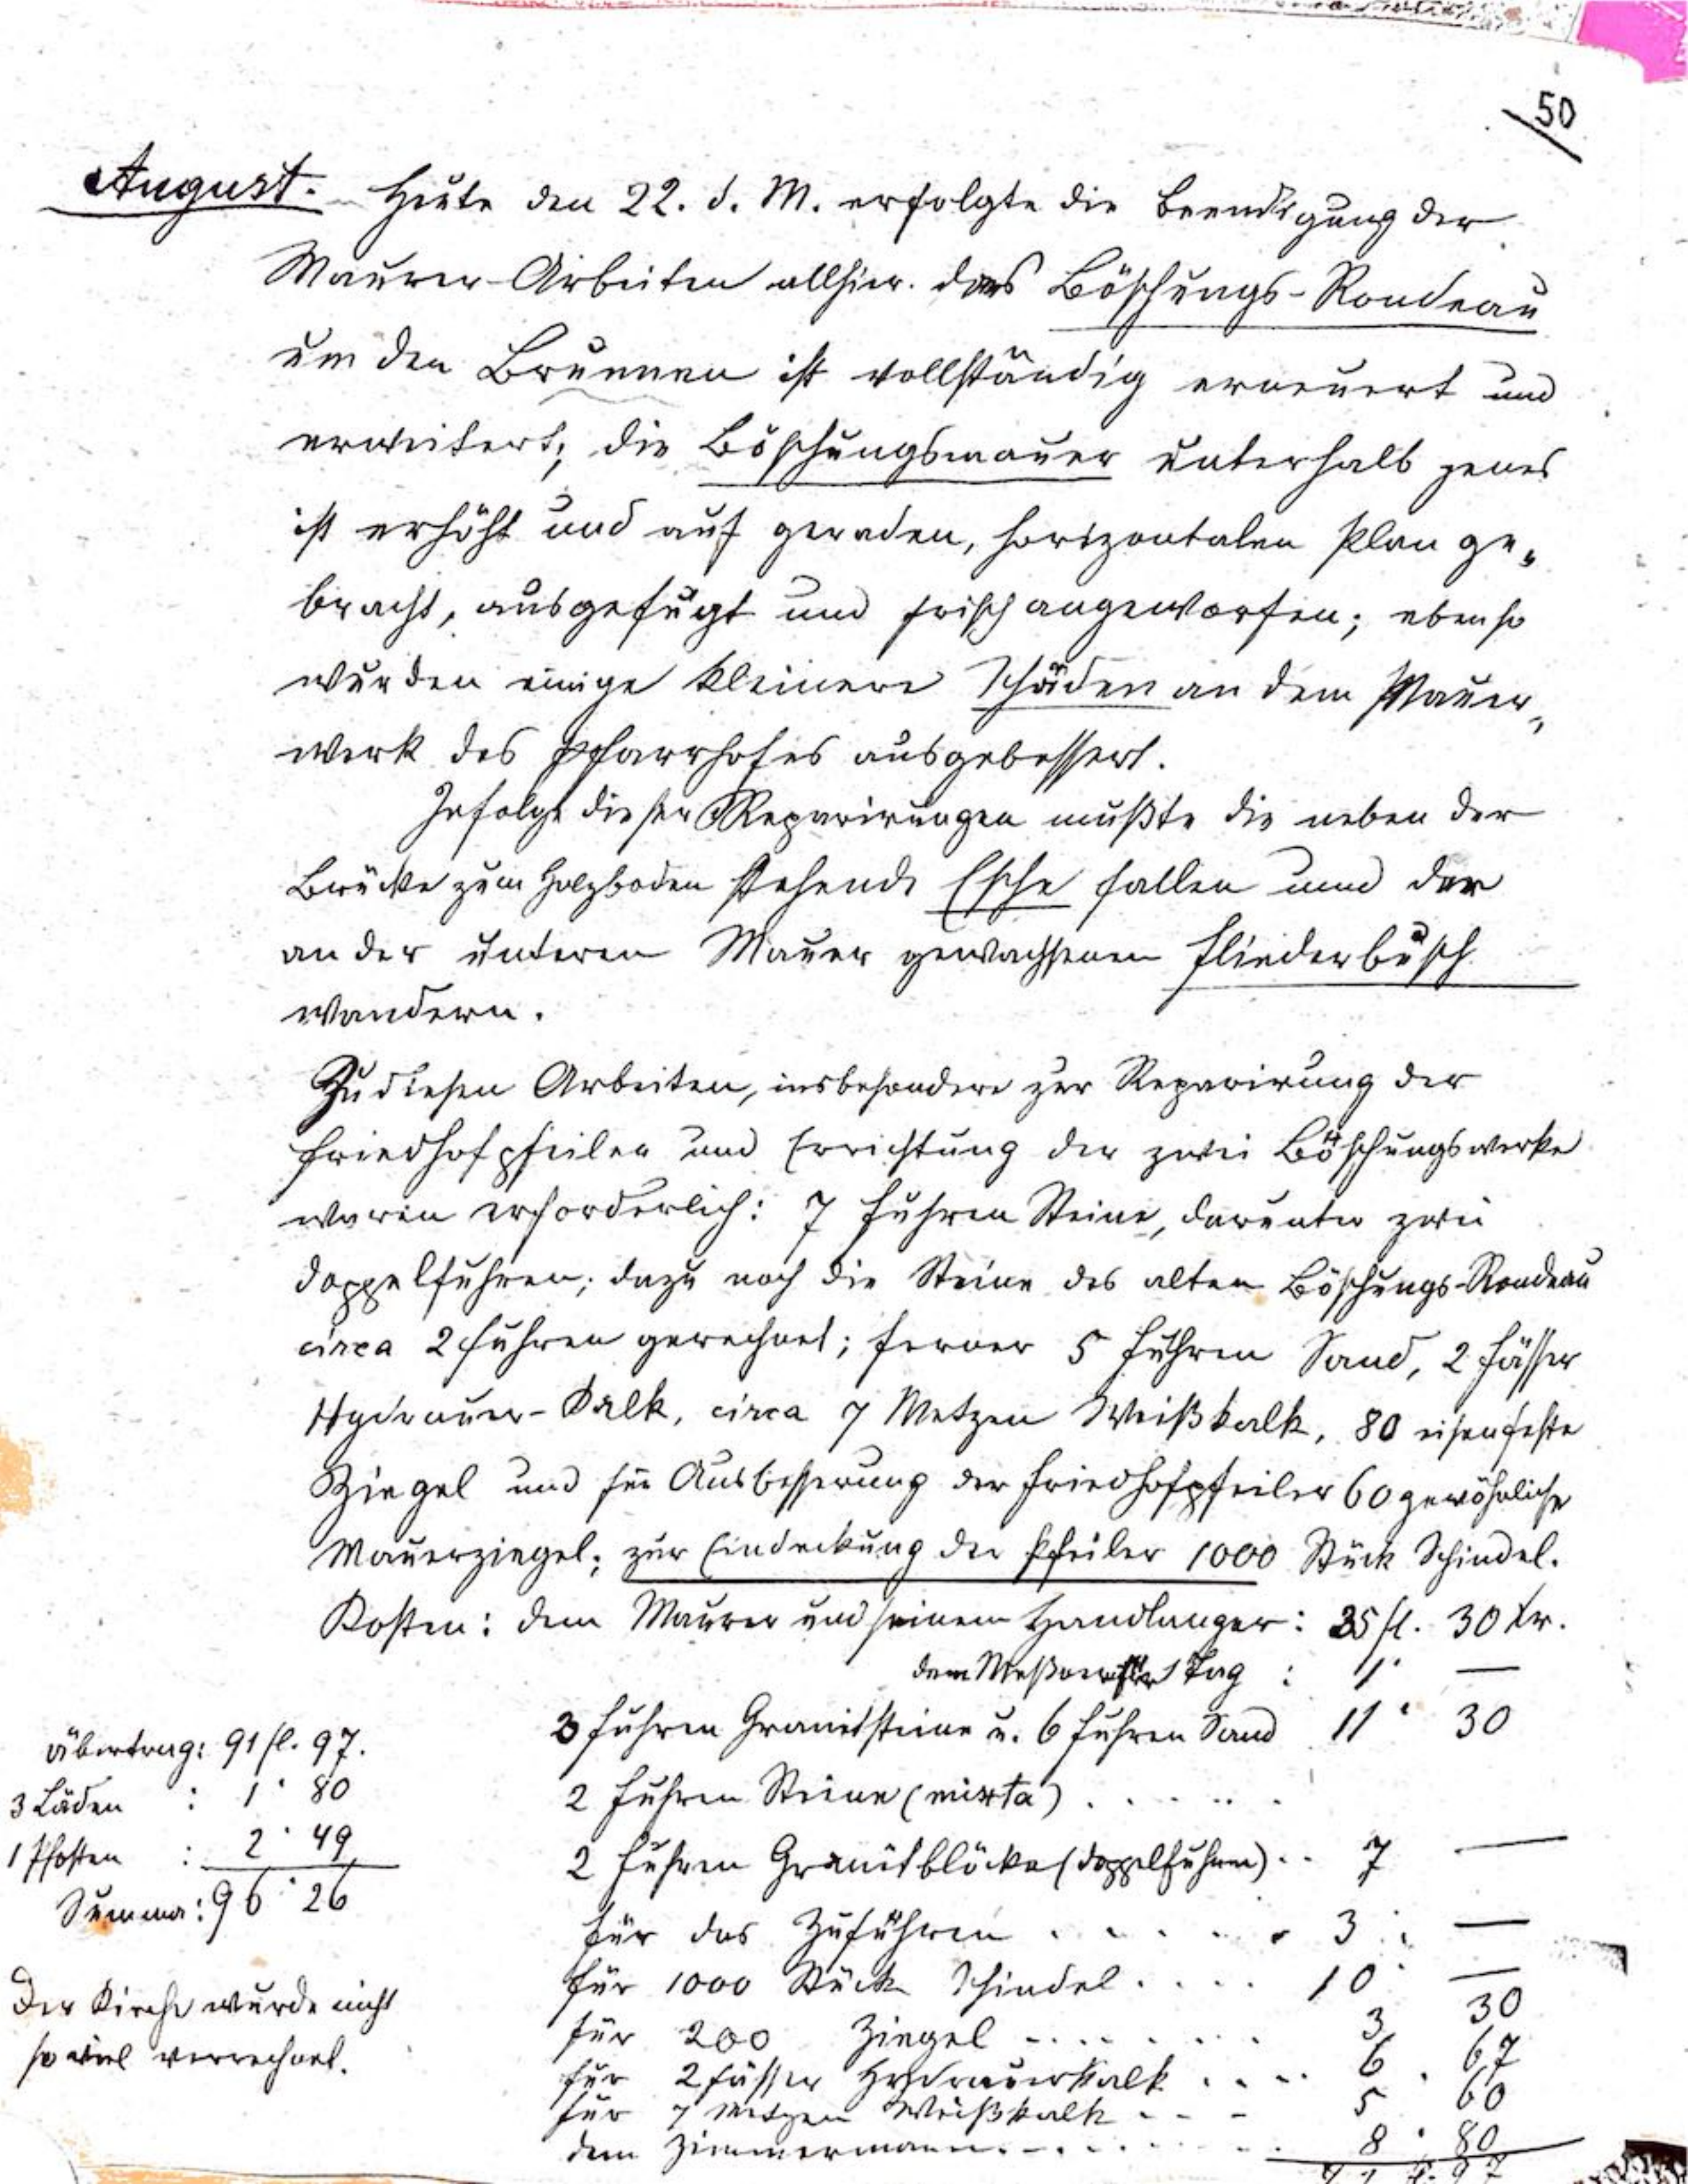 50
August. Heute den 22. d. M. erfolgte die Beendigung der
Maurer-Arbeiten allhier. das Böschungs-Rondeau
um den Brunnen ist vollständig erneuert und
erweitert; die Böschungsmauer unterhalb jenes
ist erhöht und auf geraden, horizontalen Plan ge„
bracht, ausgefügt und frisch angeworfen; ebenso
wurden einige kleinere Schäden an dem Mauer„
werk des Pfarrhofes ausgebessert.
Infolge dieser Reparirungen mußte die neben der
Brücke zum Holzboden stehende Esche fallen und der
an der unteren Mauer gewachsenen Fliederbusch
wandern.
Zu diesen Arbeiten, insbesondere zur Reparirung der
Friedhofpfeiler und Errichtung der zwei Böschungswerke
waren erforderlich: 7 Fuhren Steine, darunter zwei
Doppelfuhren; dazu noch die Steine des alten Böschungs-Rondeau
circa 2 Fuhren gerechnet; ferner 5 Fuhren Sand, 2 Fässer
Hydrauer-Kalk, circa 7 Metzen Weißkalk, 80 eisenfeste
Ziegel und für Ausbesserung der Friedhofpfeiler 60 gewöhnliche
Mauerziegel; zur Eindeckung der Pfeiler 1000 Stück Schindel.
Kosten: dem Maurer und seinem Handlanger: 35 fl. 30 kr.
dem Meßner für 1 Tag : 1 · —
3 Fuhren Granitsteine u. 6 Fuhren Sand 11 · 30
2 Fuhren Steine (mixta) . . . . . .
2 Fuhren Granitblöcke (Doppelfuhren) . . 7 —
für das Zuführen . . . . . . 3 : —
für 1000 Stück Schindel . . . . 10 · —
für 200 Ziegel . . . . . . . 3 30
für 2 Fässer Hydrauerkalk . . . . 6 . 67
für 7 Metzen Weißkalk - - - 5 60
dem Zimmermann . . . . . . . 8 · 80
Übertrag: 91 fl. 97.
3 Läden : 1 · 80
1 Pfosten : 2 · 49
Summa: 96 · 26
Der Kirche wurde nicht
so viel verrechnet.